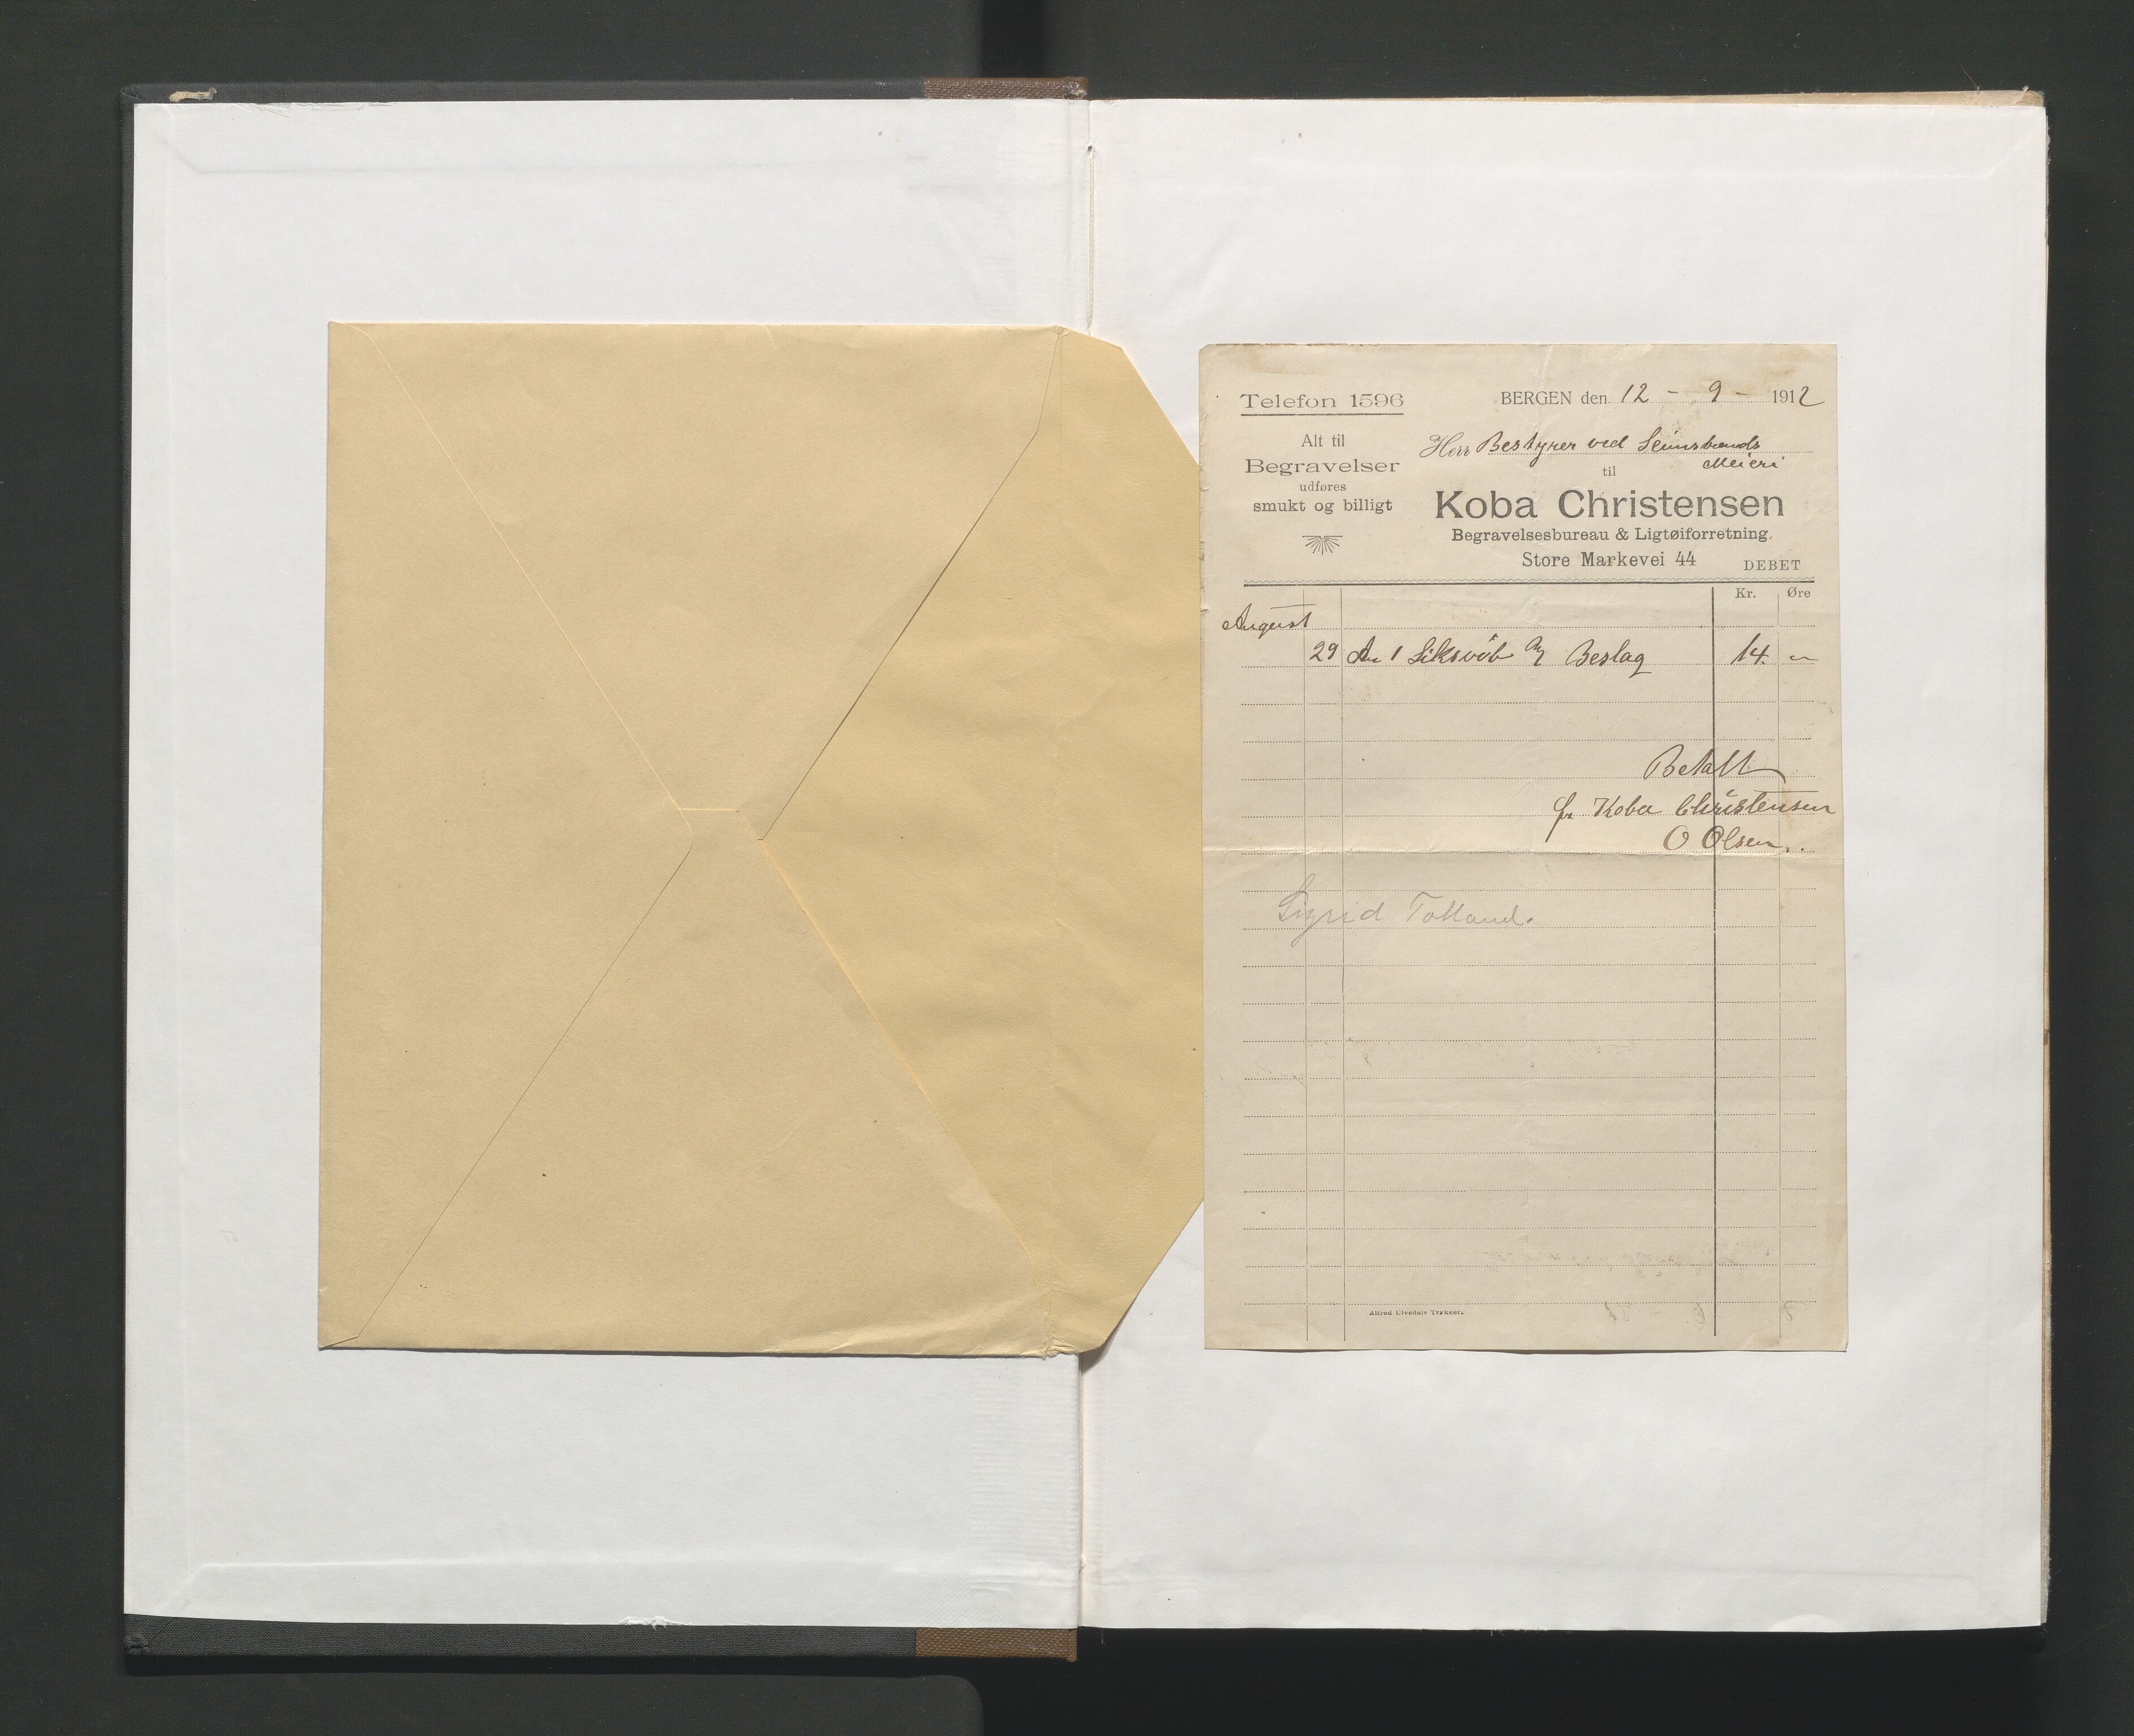 Telefon 1596
Alt til
Begravelser
udføres
smukt og billigt
BERGEN den 12 - 9 - 1912
Herr Bestyrer ved Seimstrands
Meieri
til
Koba Christensen
Begravelsesbureau & Ligtøiforretning.
Store Markevei 44
DEBET
Kr. Øre
August
29 An 1 Beslag 14. "
Betalt
pr Koba Christensen
O Olsen.
Sigrid Totland.
Alfred Ulvedals Trykkeri.